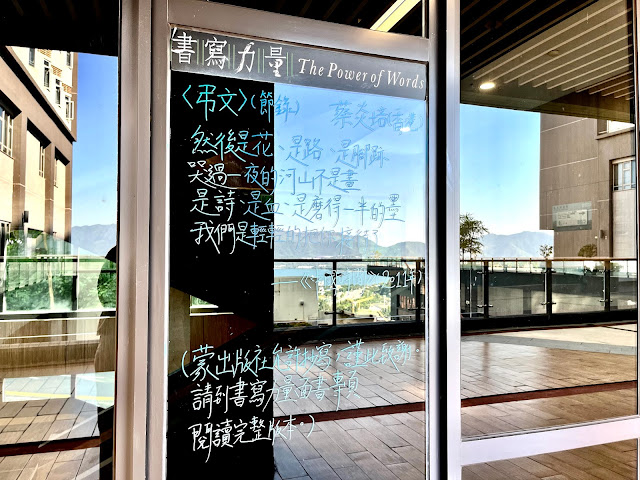 書寫力量 The Power of Words
〈弔文〉(節錄) 蔡炎培(香港)
然後是花、是路、是腳跡
哭過一夜的河山不是畫
是詩、是血、是磨得一半的墨
我們是輕輕的
(蒙出版社允許抄寫，謹此致謝。
請到書寫力量面書專頁
閱讀完整版本。)